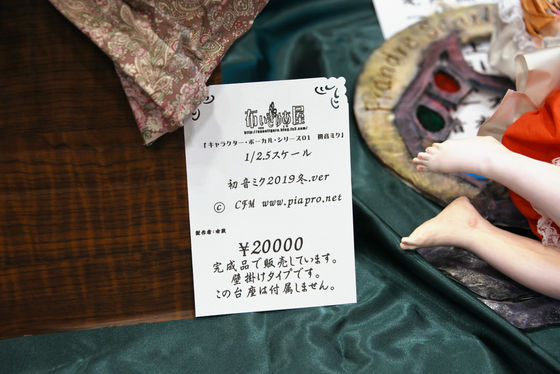 布ぃぎゅあ屋
『キャラクター・ボーカル・シリーズ01 初音ミク』
1/2.5スケール
初音ミク2019冬.ver
© CFM www.piapro.net
¥20000
完成品で販売しています。
壁掛けタイプです。
この台座は付属しません。